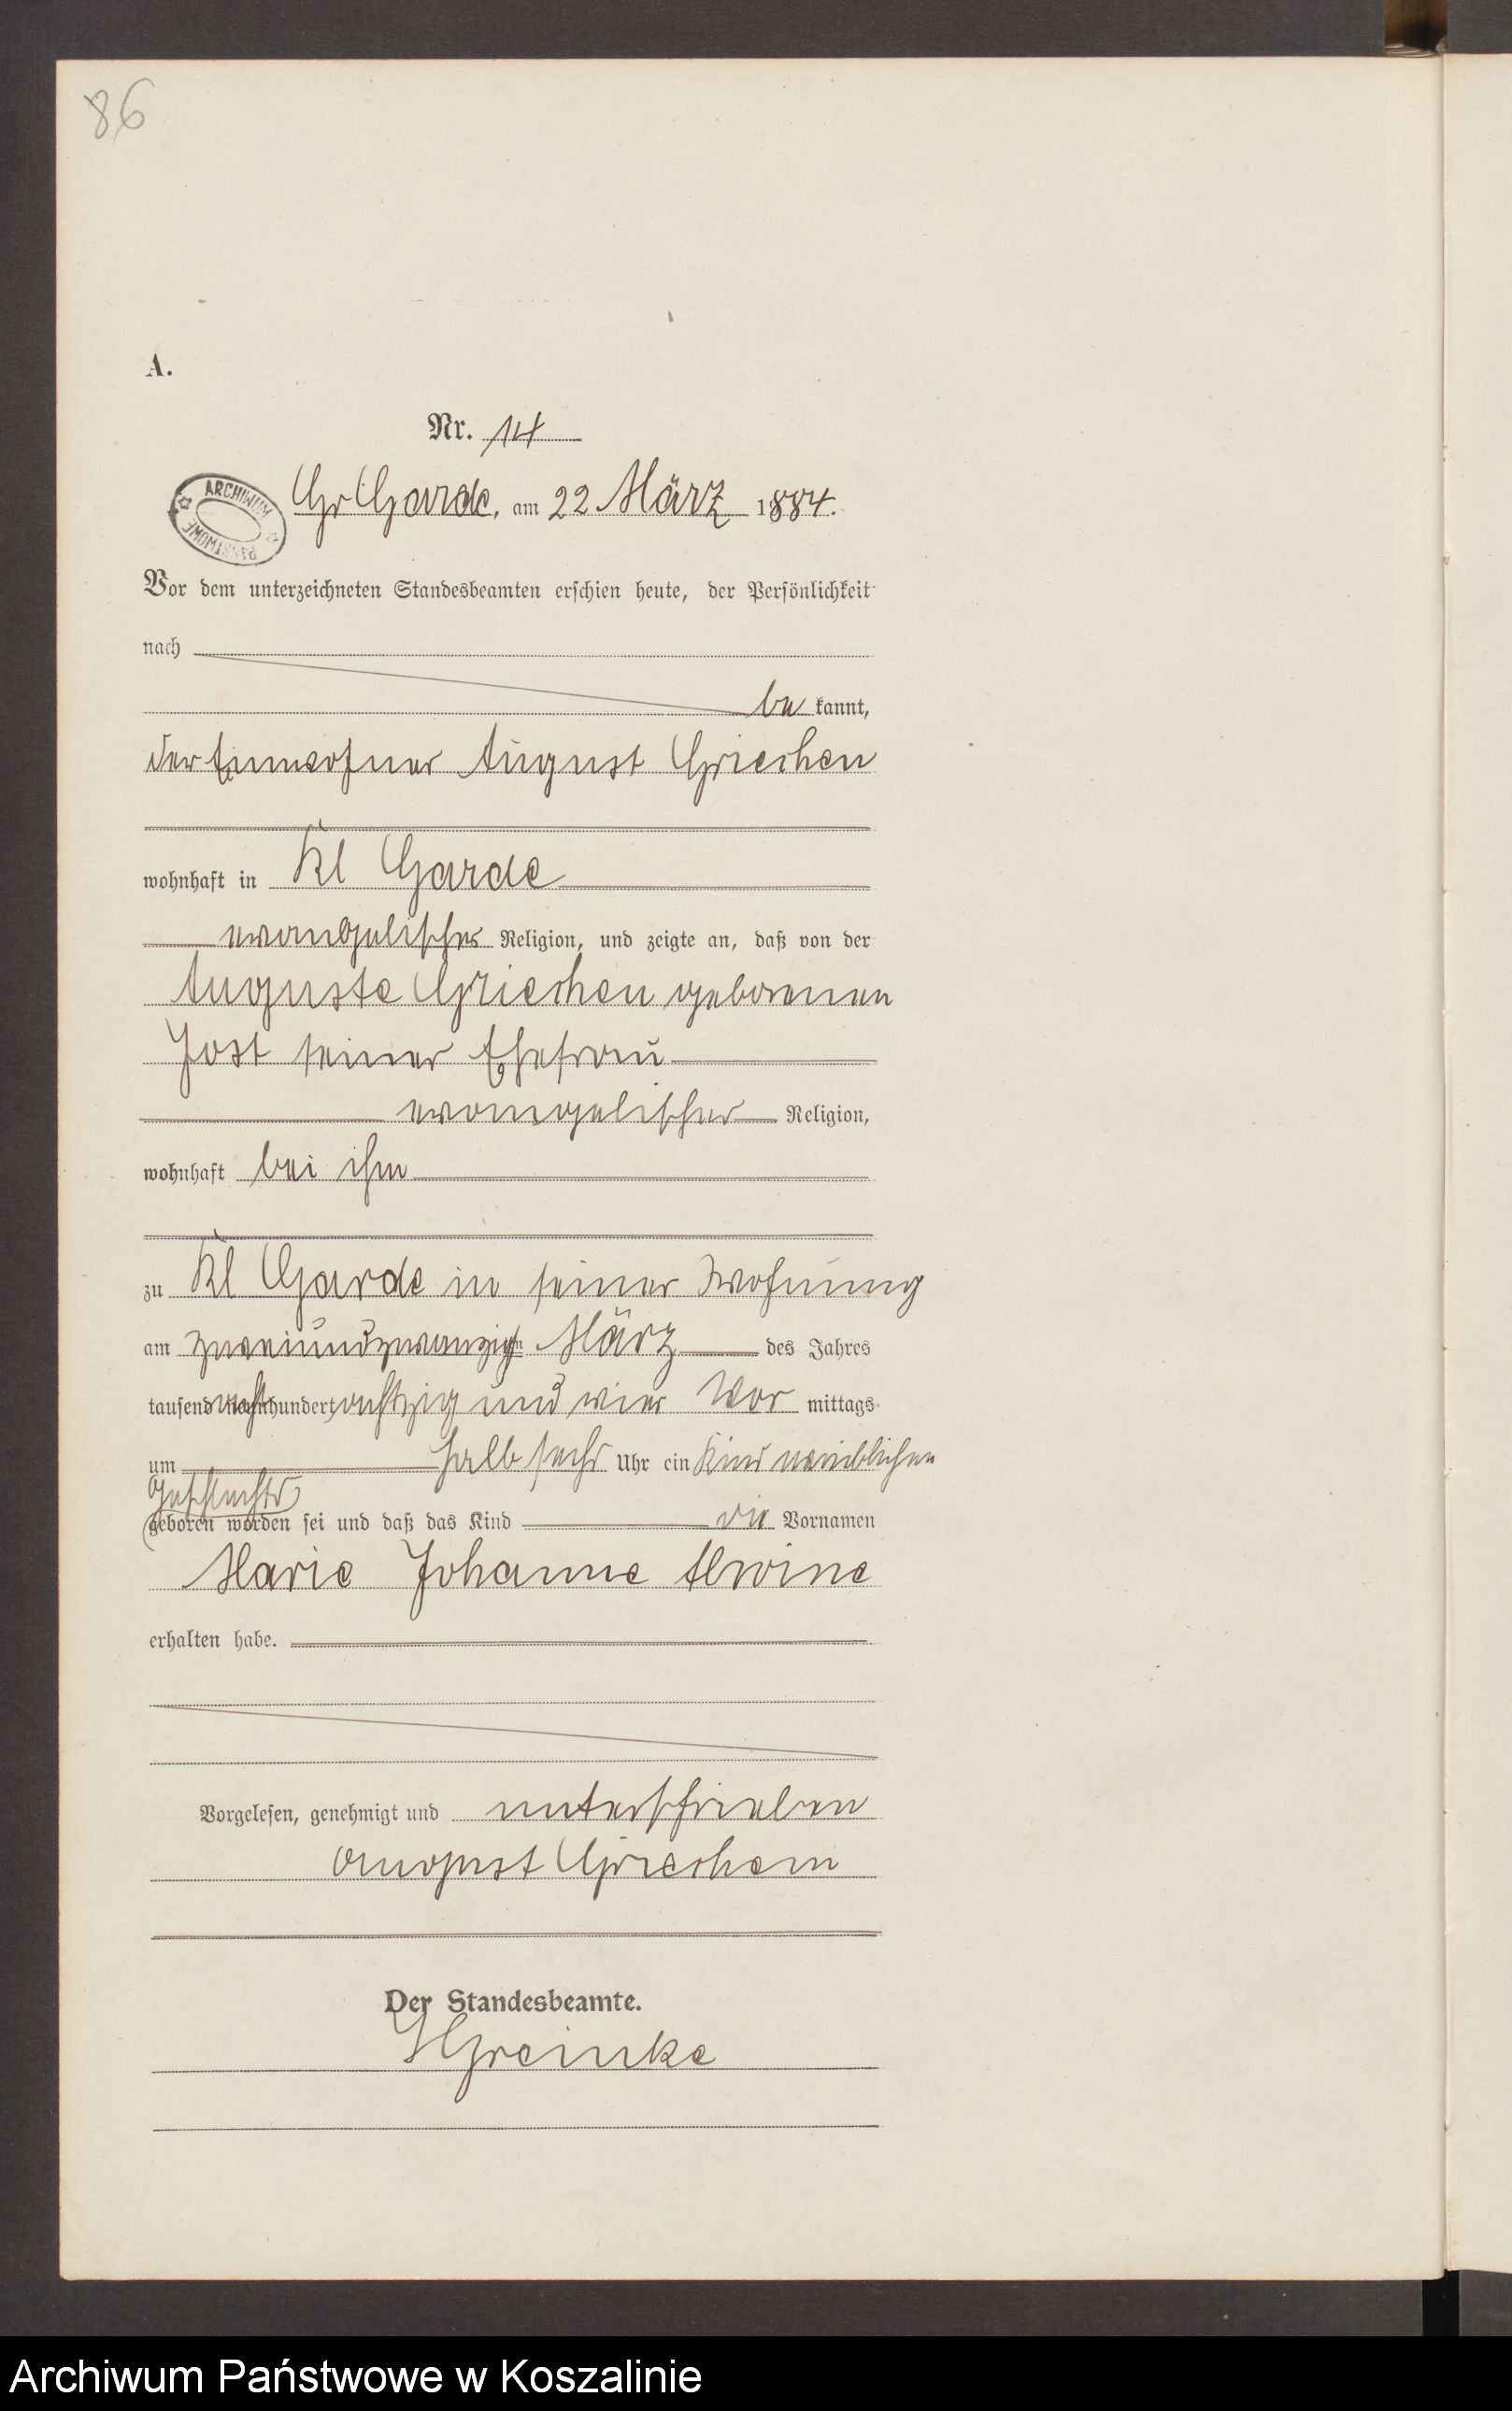 86
A.
Nr. 14
Gr Garde, am 22 März 1884.
ARCHIWUM PAŃSTWOWE
Vor dem unterzeichneten Standesbeamten erschien heute, der Persönlichkeit
nach
be kannt,
der Einwohner August Grieshen
wohnhaft in Kl Garde
evangelischer Religion, und zeigte an, daß von der
Auguste Grieshen geborenen
Jost seiner Ehefrau
evangelischer Religion,
wohnhaft bei ihm
zu Kl Garde in seiner Wohnung
am zweiundzwanzigsten März des Jahres
tausend acht hundert achtzig und vier Vor mittags
um halb sechs Uhr ein Kind weiblichen
Geschlechts
geboren worden sei und daß das Kind die Vornamen
Marie Johanne Alwine
erhalten habe.
Vorgelesen, genehmigt und unterschrieben
August Grieshem
Der Standesbeamte.
Greinke
Archiwum Państwowe w Koszalinie